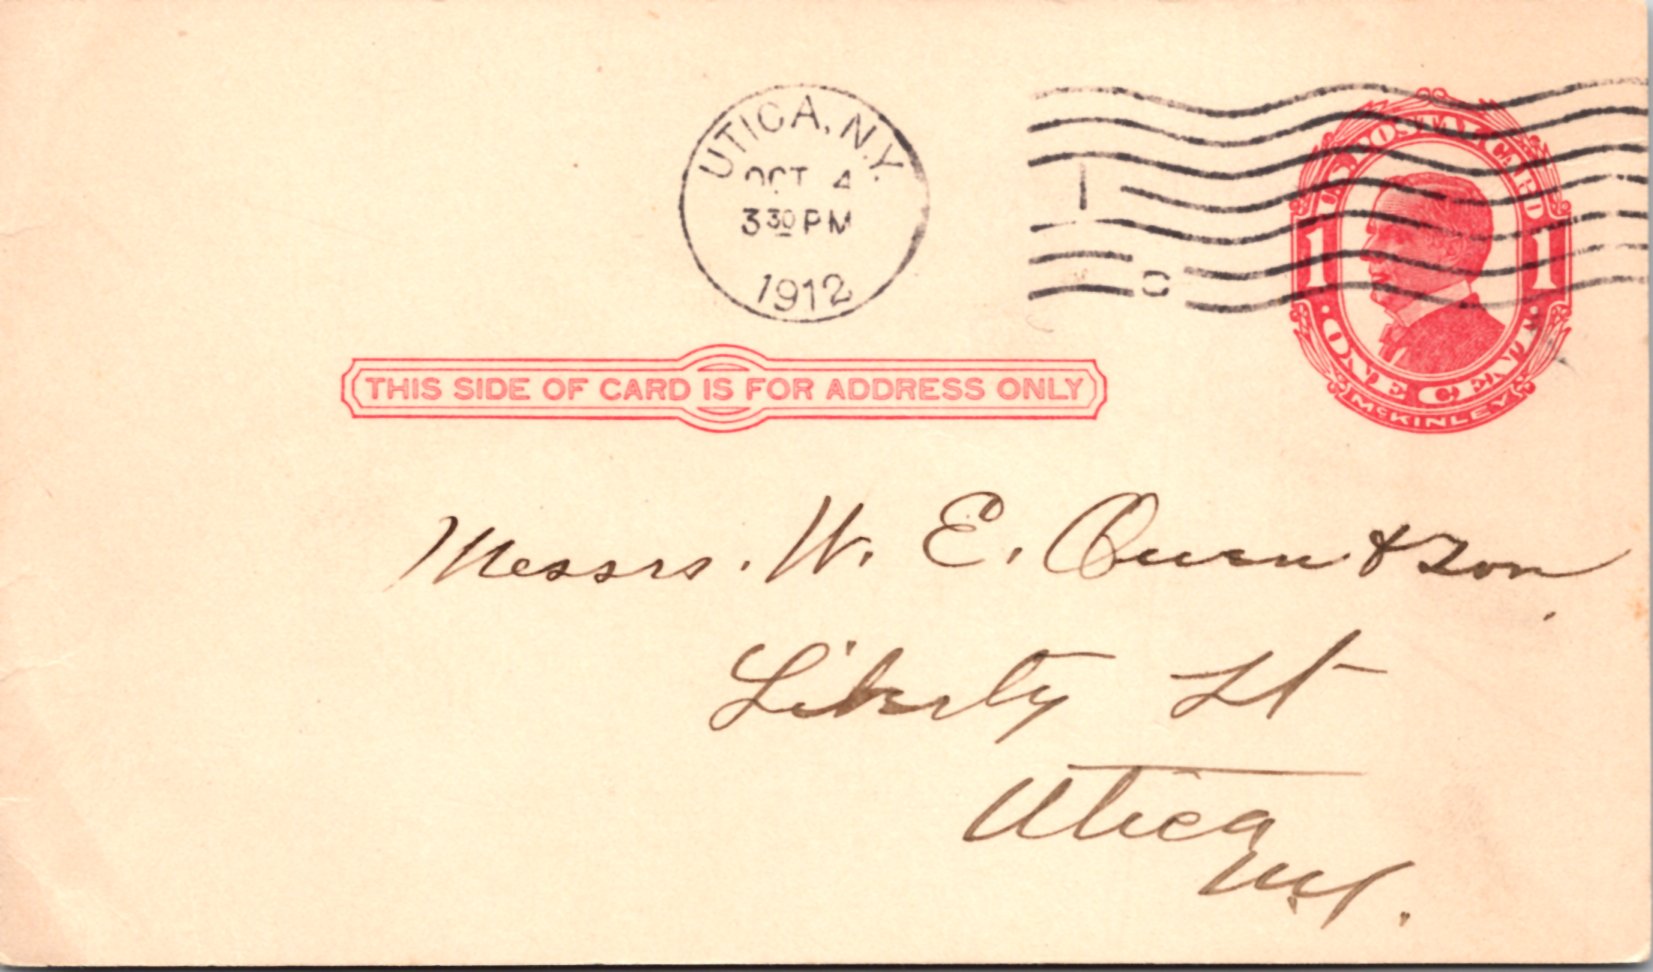 UTICA, N.Y.
OCT 4
3 30 PM
1912
1
C
U.S. POSTAL CARD
1 1
· ONE CENT ·
McKINLEY
THIS SIDE OF CARD IS FOR ADDRESS ONLY
Messrs. W. E. & Son
Liberty St
Utica
N.Y.